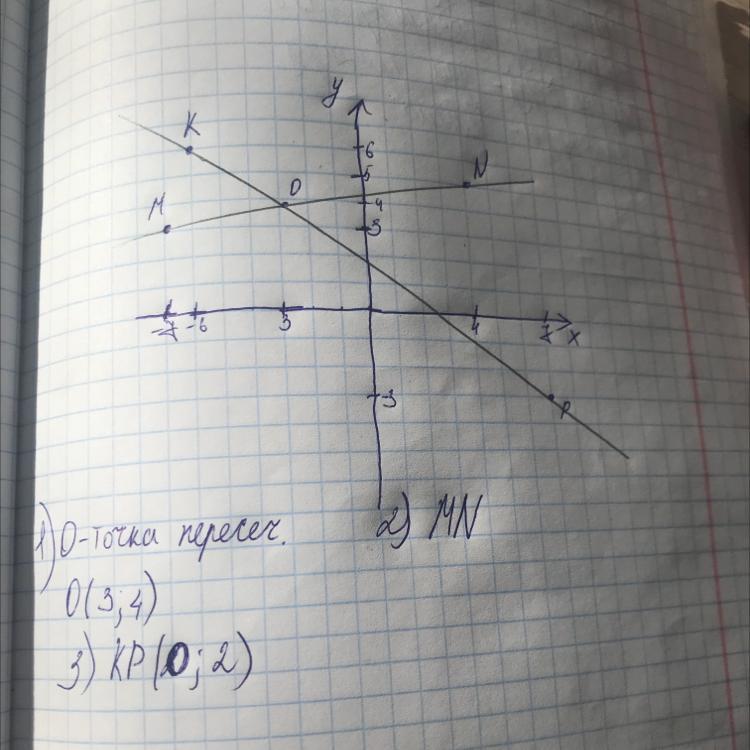 y
K
6
5
N
O
M
4
3
-7 -6 3 4 7 x
-3
P
1) O-точка пересеч.
2) MN
O(3;4)
3) KP(0;2)